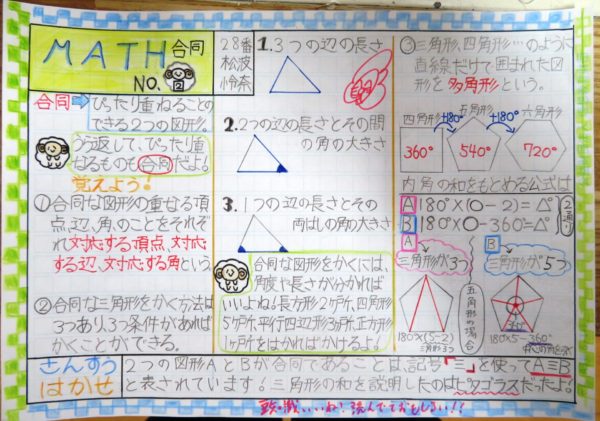 MATH 合同
NO.
28番
松波
怜奈
合同→ぴったり重ねることの
できる2つの図形。
うら返して、ぴったり重
せるものも合同だよ!
覚えよう!
①合同な図形の重せる頂
点、辺、角、のことをそれぞ
れ対応する頂点、対応
する辺、対応する角という
②合同な三角形をかく方法は
3つあり、3つ条件があれば
かくことができる。
1.3つの辺の長さ
2.2つの辺の長さとその間
の角の大きさ
3.1つの辺の長さとその
両はしの角の大きさ
合同な図形をかくには、
角度や長さが分かれば
いいよね!長方形2ケ所、四角形
5ケ所、平行四辺形3ケ所、正方形
1ケ所をはかればかけるよ!
③三角形、四角形…のように
直線だけで囲まれた図
形を多角形という。
四角形 +180° 五角形 +180° 六角形
360° 540° 720°
内角の和をもとめる公式は
A 180°×(○-2)=△°
B 180°×○-360°=△°
2通り
A 三角形が3つ
B 三角形が5つ
五角形の場合
360°
さんすう
はかせ
2つの図形AとBが合同であることは、記号「≡」を使ってA≡B
と表されています!三角形の和を説明したのはピタゴラスだったよ!